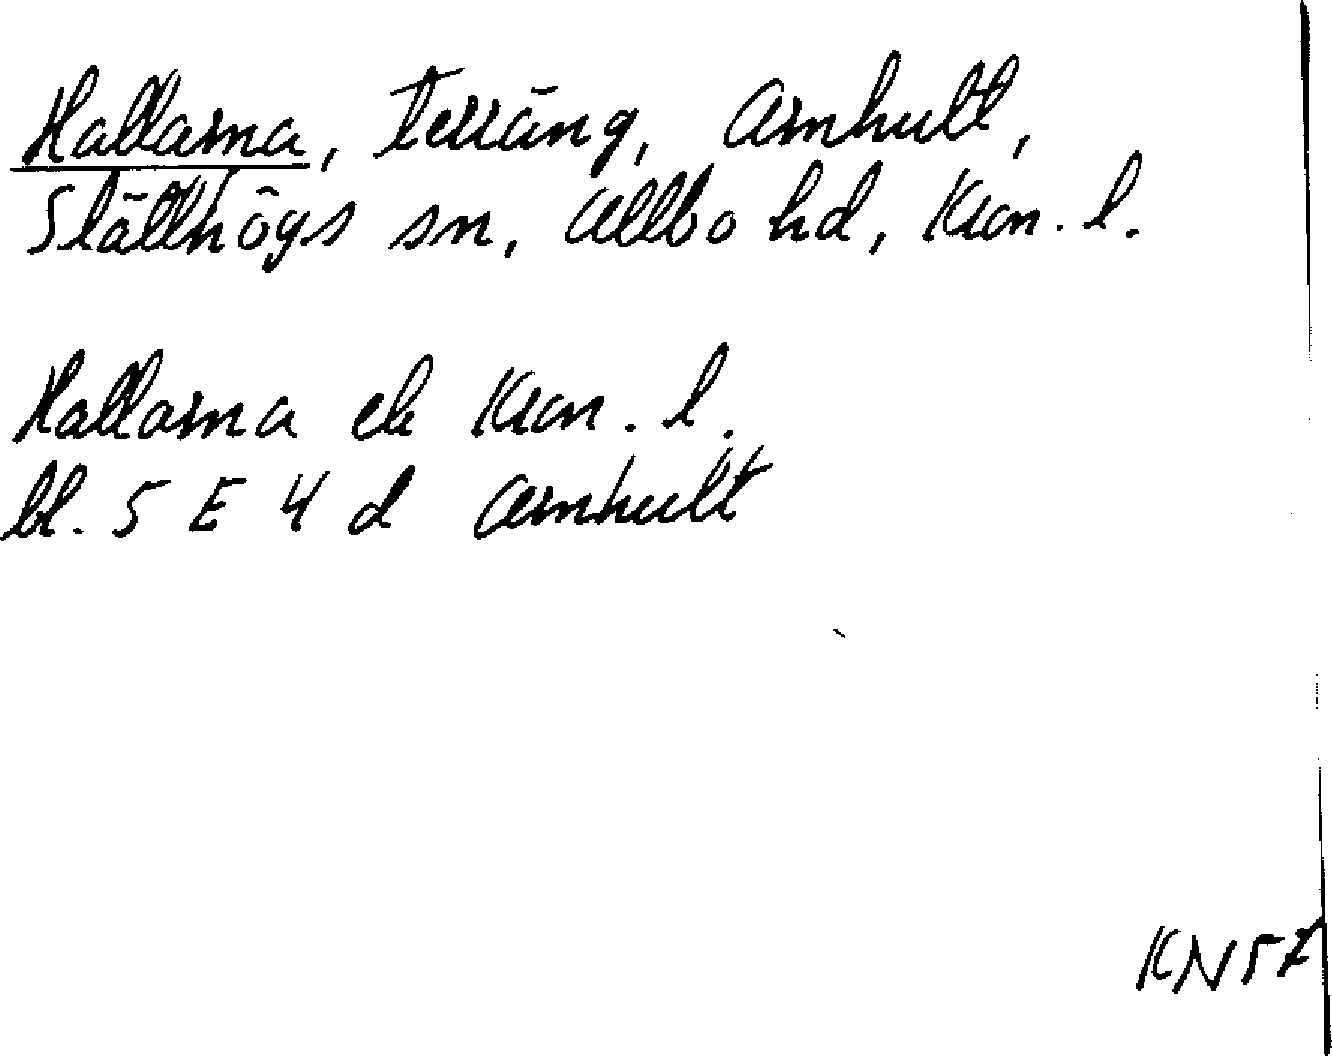 Hallarna, terräng, Arnhult,
Slätthögs sn, Allbo hd, Kron. l.
Hallarna ek Kron. l.
bl. 5 E 4 d Arnhult
KN57